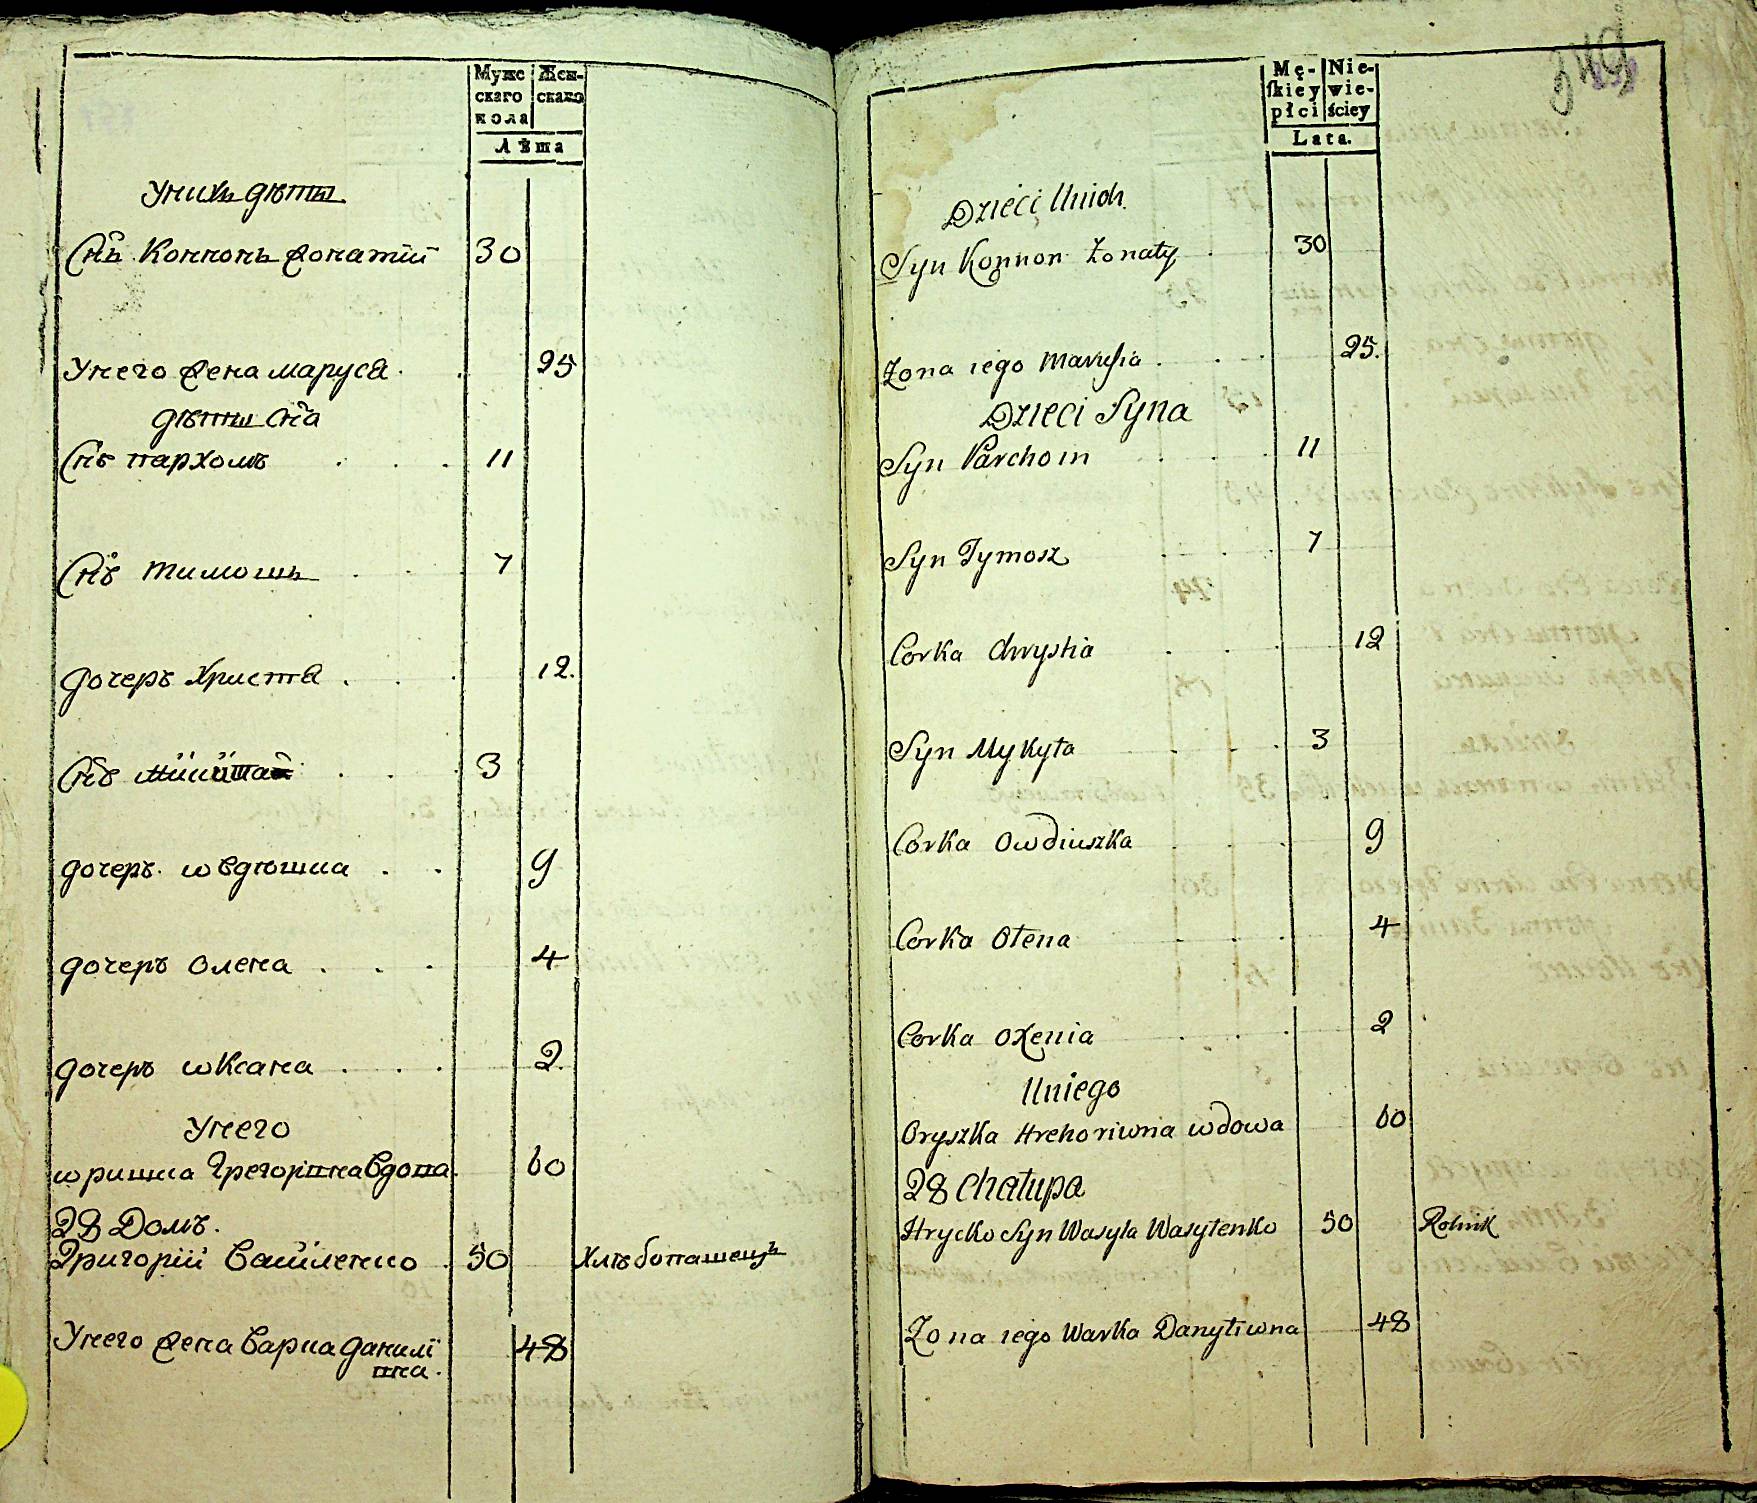 Мужс Жен-
скаго скаго
пола
Лѣта
У них дѣты
Снъ Коннонъ Жонатій 30
У него Жена Маруся 25
дѣты Сна
Снъ пархомъ 11
Снъ тимошъ 7
дочеръ Христя 12.
Снъ 3
дочеръ ѡвдюшка 9
дочеръ Олена 4
дочеръ ѡксана 2.
У него
ѡришка Григорівна вдова 60
28 Домъ.
Григорій Василенко 50 Хлѣбопашецъ
У него Жена Варка данилі
вна. 48
249
Mę- Nie-
ſkiey wie-
płci ściey
Lata.
Dzieci Unich
Syn Konnon Żonaty 30
Żona iego Marusia 25.
Dzieci Syna
Syn Parchom 11
Syn Tymosz 7
Corka Chrystia 12
Syn Mykyta 3
Corka Owdiuszka 9
Corka Ołena 4
Corka Oxenia 2
Uniego
Oryszka Hrehoriwna wdowa 60
28 Chałupa
Hrycko Syn Wasyla Wasylenko 50 Rolnik
Żona iego Warka Danyliwna 48